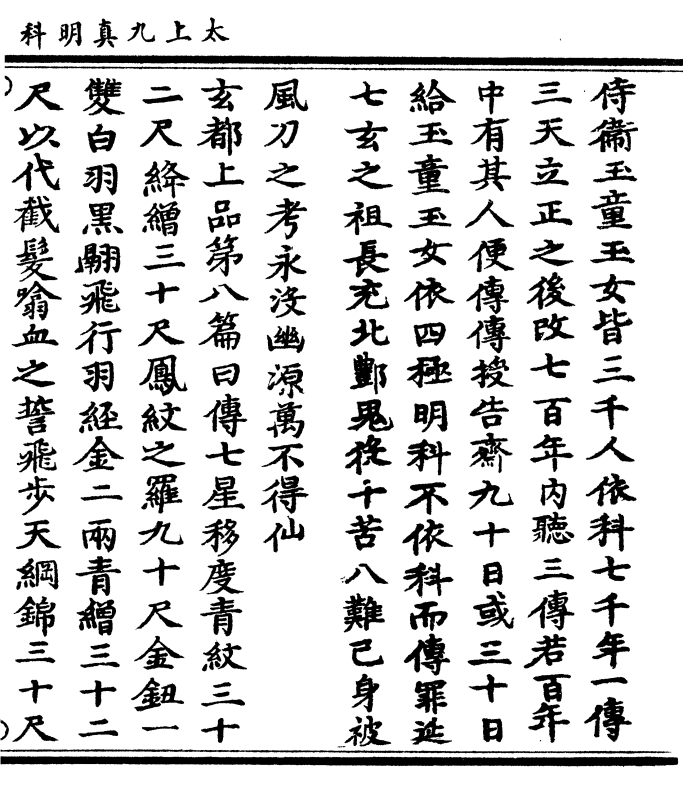 太上九真明科
侍衞玉童玉女皆三千人依科七千年一傳
三天立正之後改七百年內聽三傳若百年
中有其人便傳傳授告齋九十日或三十日
給玉童玉女依四極明科不依科而傳罪延
七玄之祖長充北酆鬼役十苦八難己身被
風刀之考永沒幽源萬不得仙
玄都上品第八篇曰傳七星移度青紋三十
二尺絳繒三十尺鳳紋之羅九十尺金鈕一
雙白羽黑翮飛行羽經金二兩青繒三十二
尺以代截髮噏血之誓飛步天綱錦三十尺